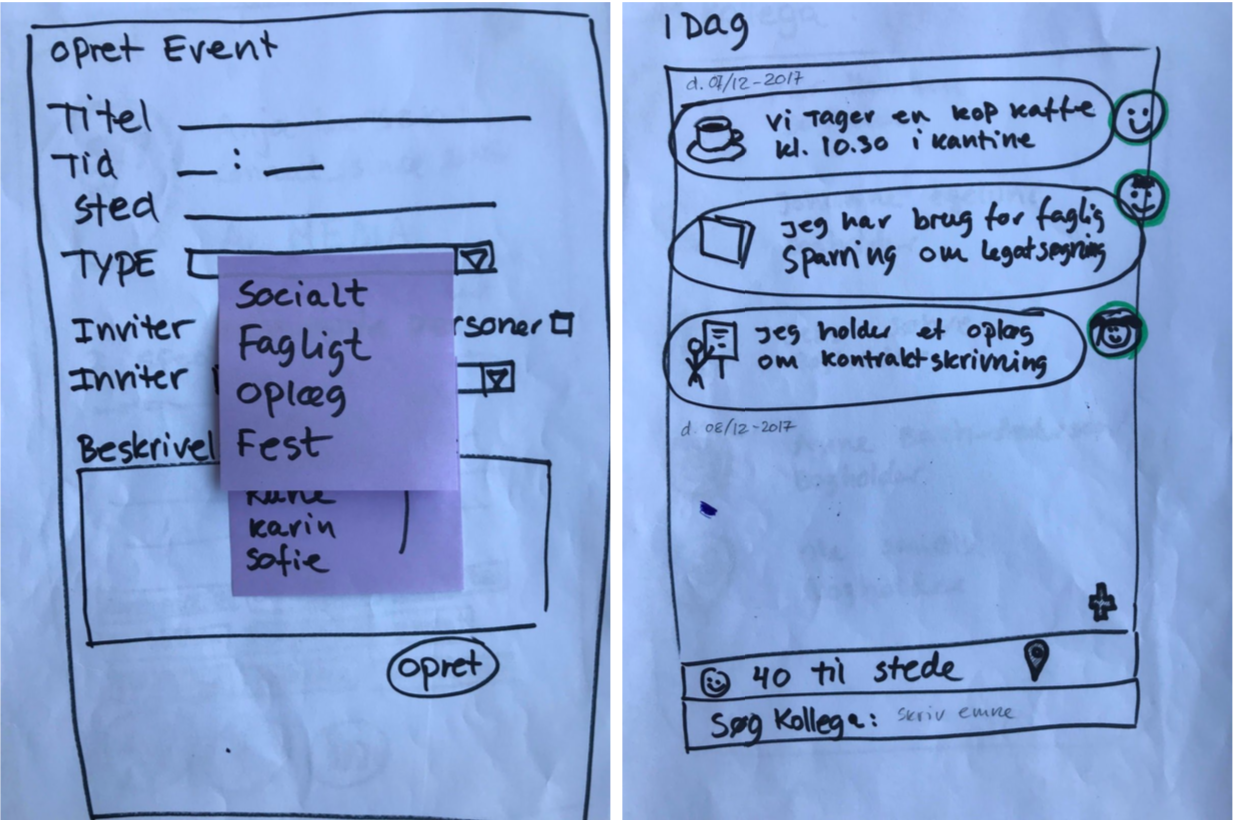 opret Event
Titel
Tid : 
sted
TYPE
Socialt
Fagligt
oplæg
Fest
Inviter
Inviter
Beskrivel
karin
sofie
opret
I Dag
d. 07/12-2017
vi Tager en kop kaffe
kl. 10.30 i kantine
jeg har brug for faglig
sparring om legatsøgning
jeg holder et oplæg
om kontraktskrivning
d. 08/12-2017
40 til stede
Søg Kollega: skriv emne